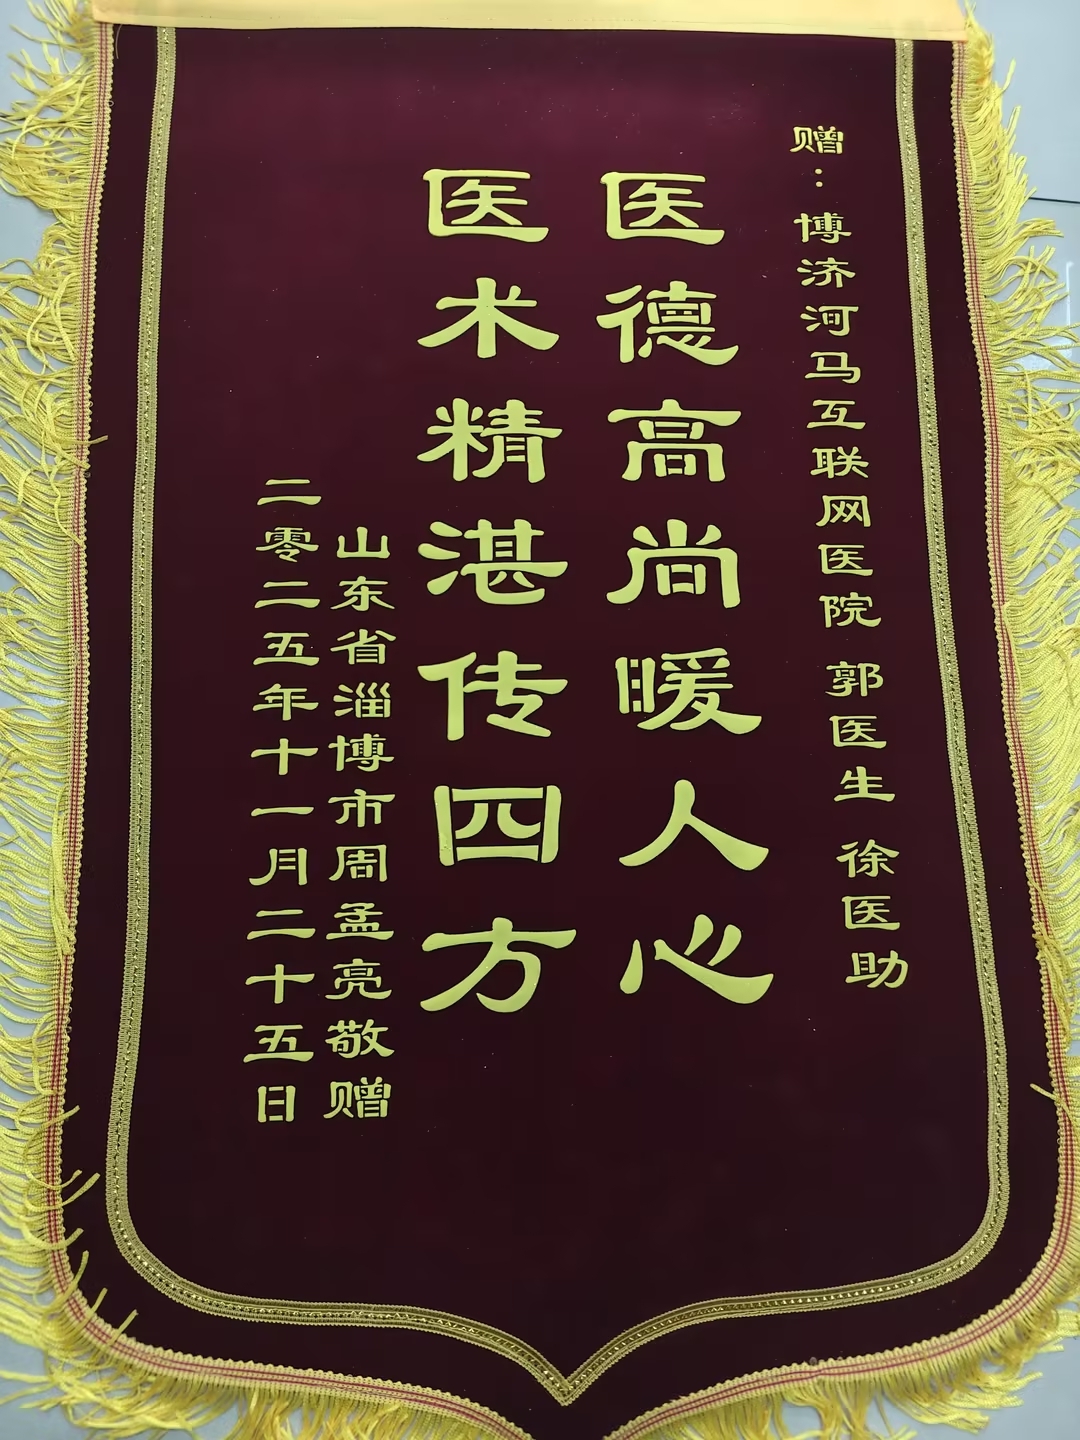 赠：博济河马互联网医院 郭医生 徐医助
医德高尚暖人心
医术精湛传四方
山东省淄博市周孟亮敬赠
二零二五年十一月二十五日